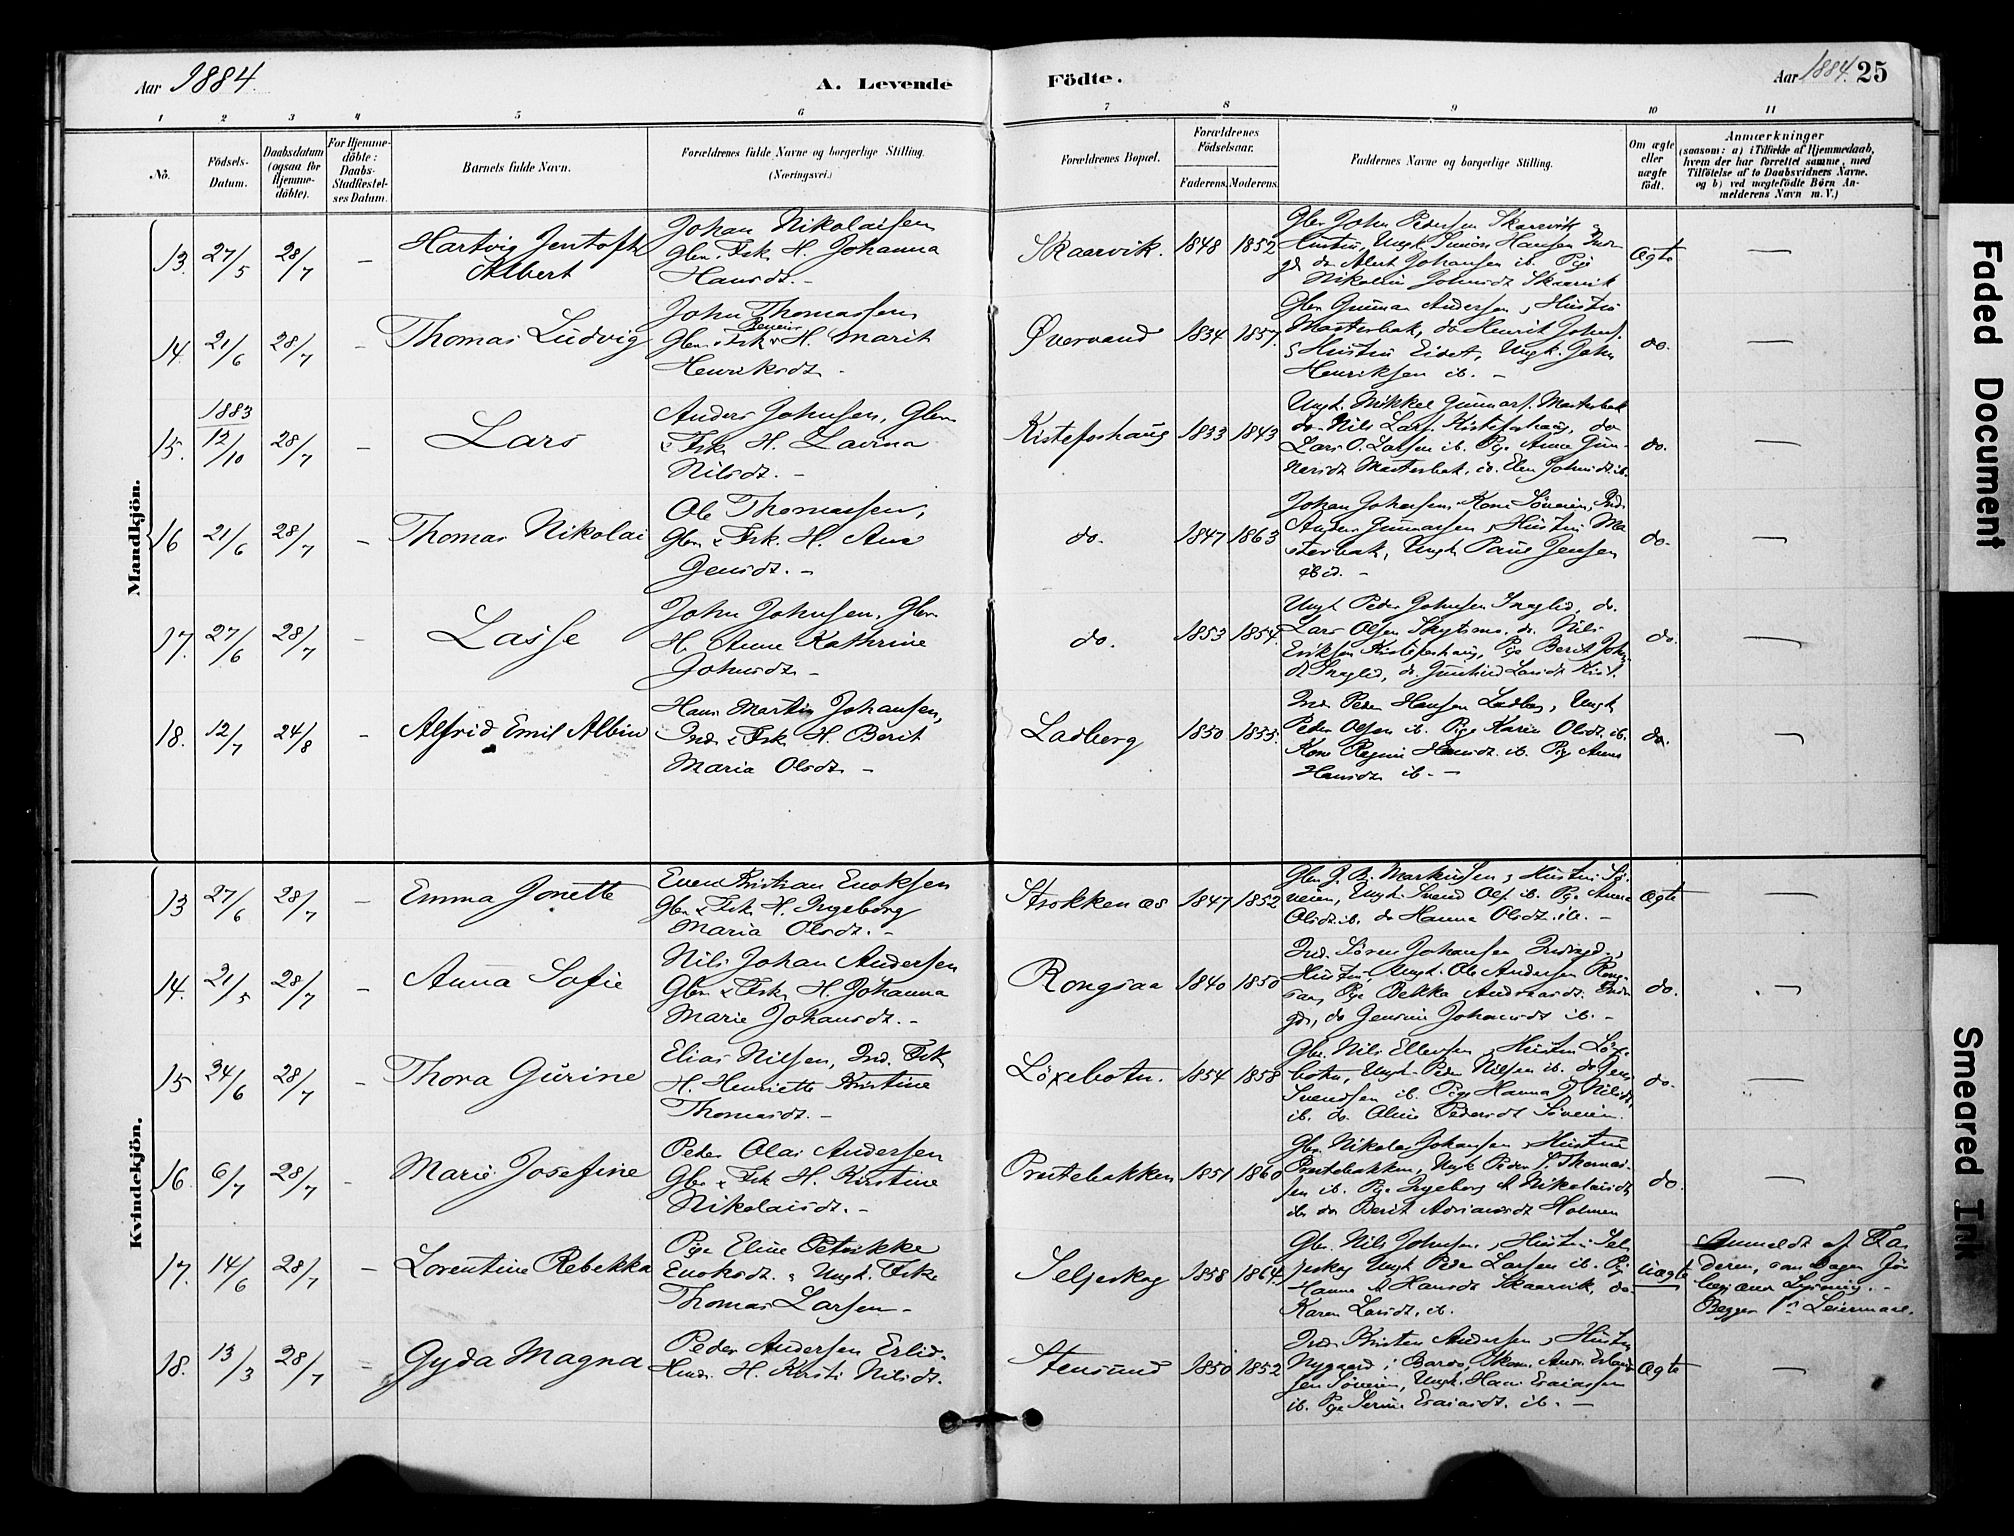 Aar 1884.
A. Levende
Födte.
Aar 1884. 25
1 2 3 4 5 6 7 8 9 10 11
No.
Födsels-Datum.
Daabsdatum (ogsaa for Hjemme-döbte).
For Hjemme-döbte: Daabs-Stadfæstel-ses Datum.
Barnets fulde Navn.
Forældrenes fulde Navne og borgerlige Stilling.
(Næringsvei.)
Forældrenes Bopæl.
Forældrenes Födselsaar.
Faderens. Moderens.
Faddernes Navne og borgerlige Stilling.
Om ægte eller uægte födt.
Anmærkninger
(saasom: a) i Tilfælde af Hjemmedaab, hvem der har forrettet samme, med Tilföielse af to Daabsvidners Navne. og b) ved uægtefödte Börn An-melderens Navn m. V.)
Mandkjön.
13. 27/5 28/7 – Hartvig Jentoft Albert
Johan Nikolaisen
Gbr. & Fsk. H. Johanna
Hansdt. –
Skaarvik. 1848 1852
Gbr. John Pedersen Skaarvik &
Hustru, Ungk. Simon Hansen Ind-
gd. do Albert Johansen ib. Pige
Nikoline Johnsdt Skaarvik
Ægte —
14. 21/6 28/7 – Thomas Ludvig
John Thomassen
Gbr. & Fsk. H. Marit
Henriksdt. –
Øvervand 1834 1857.
Gbr. Gunnar Andersen & Hustru
Masterbak, do Henrik Johns.
& Hustru Eidet, Ungk. John
Henriksen ib. –
do. —
15. 1883 12/10 28/7 – Lars
Anders Johnsen, Gbr.
& Fsk. H. Lavina
Nilsdt. –
Kisteforshaug 1833 1843
Ungk. Mikkel Gunnars. Masterbak
do Nils Lars. Kisteforshaug, do
Lars O. Larsen ib. Pige Anne Gun-
narsdt Masterbak, do. Elen Johnsdt ib.
do. —
16 21/6 28/7 – Thomas Nikolai
Ole Thomassen,
Gbr. & Fsk. H. Ane
Jensdt. –
do. 1847 1863
Johan Johansen, Kone Söveien, Ind.
Anders Gunnarsen & Hustru Ma-
sterbak, Ungk. Paul Jensen
ibid. –
do. —
17. 27/6 28/7 – Lasse
John Johnsen, Gbr.
H. Anne Kathrine
Johnsdt. –
do. 1853 1854.
Ungk. Peder Johnsen Inglid, do.
Lars Olsen Skytsmo. do. Nils
Eriksen Kisteforshaug, Pige Berit Johns-
dt Inglid, do. Gunhild Larsdt Kist.
do. —
18. 12/7 24/8 – Alfrid Emil Albin
Hans Martin Johansen,
Ind. & Fsk. H. Berit
Maria Olsdt. –
Ladberg 1850 1855.
Ind. Peder Hansen Ladbg, Ungk.
Peder Olsen ib. Pige Karen Olsdt. ib.
Kone Regine Hansdt. ib. Pige Anne
Hansdt. ib. –
do. —
Kvindekjön.
13 27/6 28/7 – Emma Jonette
Even Kristian Enoksen
Gbr. & Fsk. H. Ingeborg
Maria Olsdt. –
Strokkenæs 1847 1852
Gbr. J. B. Markussen & Hustru Sö-
veien, Ungk. Svend Ols. ib. Pige Anna
Olsdt. ib. do Hanna Olsdt. ib. –
Ægte —
14. 21/5 28/7 – Anna Sofie
Nils Johan Andersen
Gbr. & Fsk. H. Johanna
Marie Johansdt. –
Rongsaa 1840 1850
Ind. Sören Johansen Indregd. &
Hustru Ungk. Ole Andersen Rong-
saa, Pige Bekka Andreasdt. Indr-
gd., do Jensine Johansdt ib. –
do. —
15 24/6 28/7 – Thora Gurine
Elias Nilsen, Ind. Fsk.
H. Henriette Kristine
Thomasdt. –
Löxebotn. 1854 1858
Gbr. Nils Ellefsen & Hustru Löxe-
botn, Ungk. Peder Nilsen ib. do Jens
Svendsen ib. Pige Hanna J. Nilsdt.
ib. do. Oline Pedersdt Söveien.
do. —
16. 6/7 28/7 – Marie Josefine
Peder Olai Andersen
Gbr. & Fsk. H. Kirstine
Nikolaisdt. –
Prestebakken 1851 1860
Gbr. Nikolai Johansen & Hustru
Prestebakken, Ungk. Peder S. Thomas-
sen ib. Pige Ingeborg A Nikolaisdt.
ib. do Berit Adriansdt Holmen
do. —
17. 14/6 28/7 – Lorentine Rebekka
Pige Eline Petrikke
Enoksdt. & Ungk. Fsk.
Thomas Larsen –
Seljeskog 1858 1864.
Gbr. Nils Johnsen & Hustru Sel-
jeskog Ungk. Peder Larsen ib. Pige
Hanna A Hansdt Skaarvik, do
Karen Larsdt, ib.
Uægte
Anmeldt af Fa-
deren,
Begges 1ste Leiermaal.
18. 13/3 28/7 – Gyda Magna
Peder Andersen Erlid-
Hmd. H. Kirsti Nilsdt.
Stensund 1850 1852
Ind. Kristen Andersen & Hustru
Nygaard i Bardo, Skom. Andr. Erland-
sen Söveien, Ungk. Hans Esaiassen
ib. Pige Serine Esaiasdt. ib. –
Ægte —
Faded Document
Smeared Ink